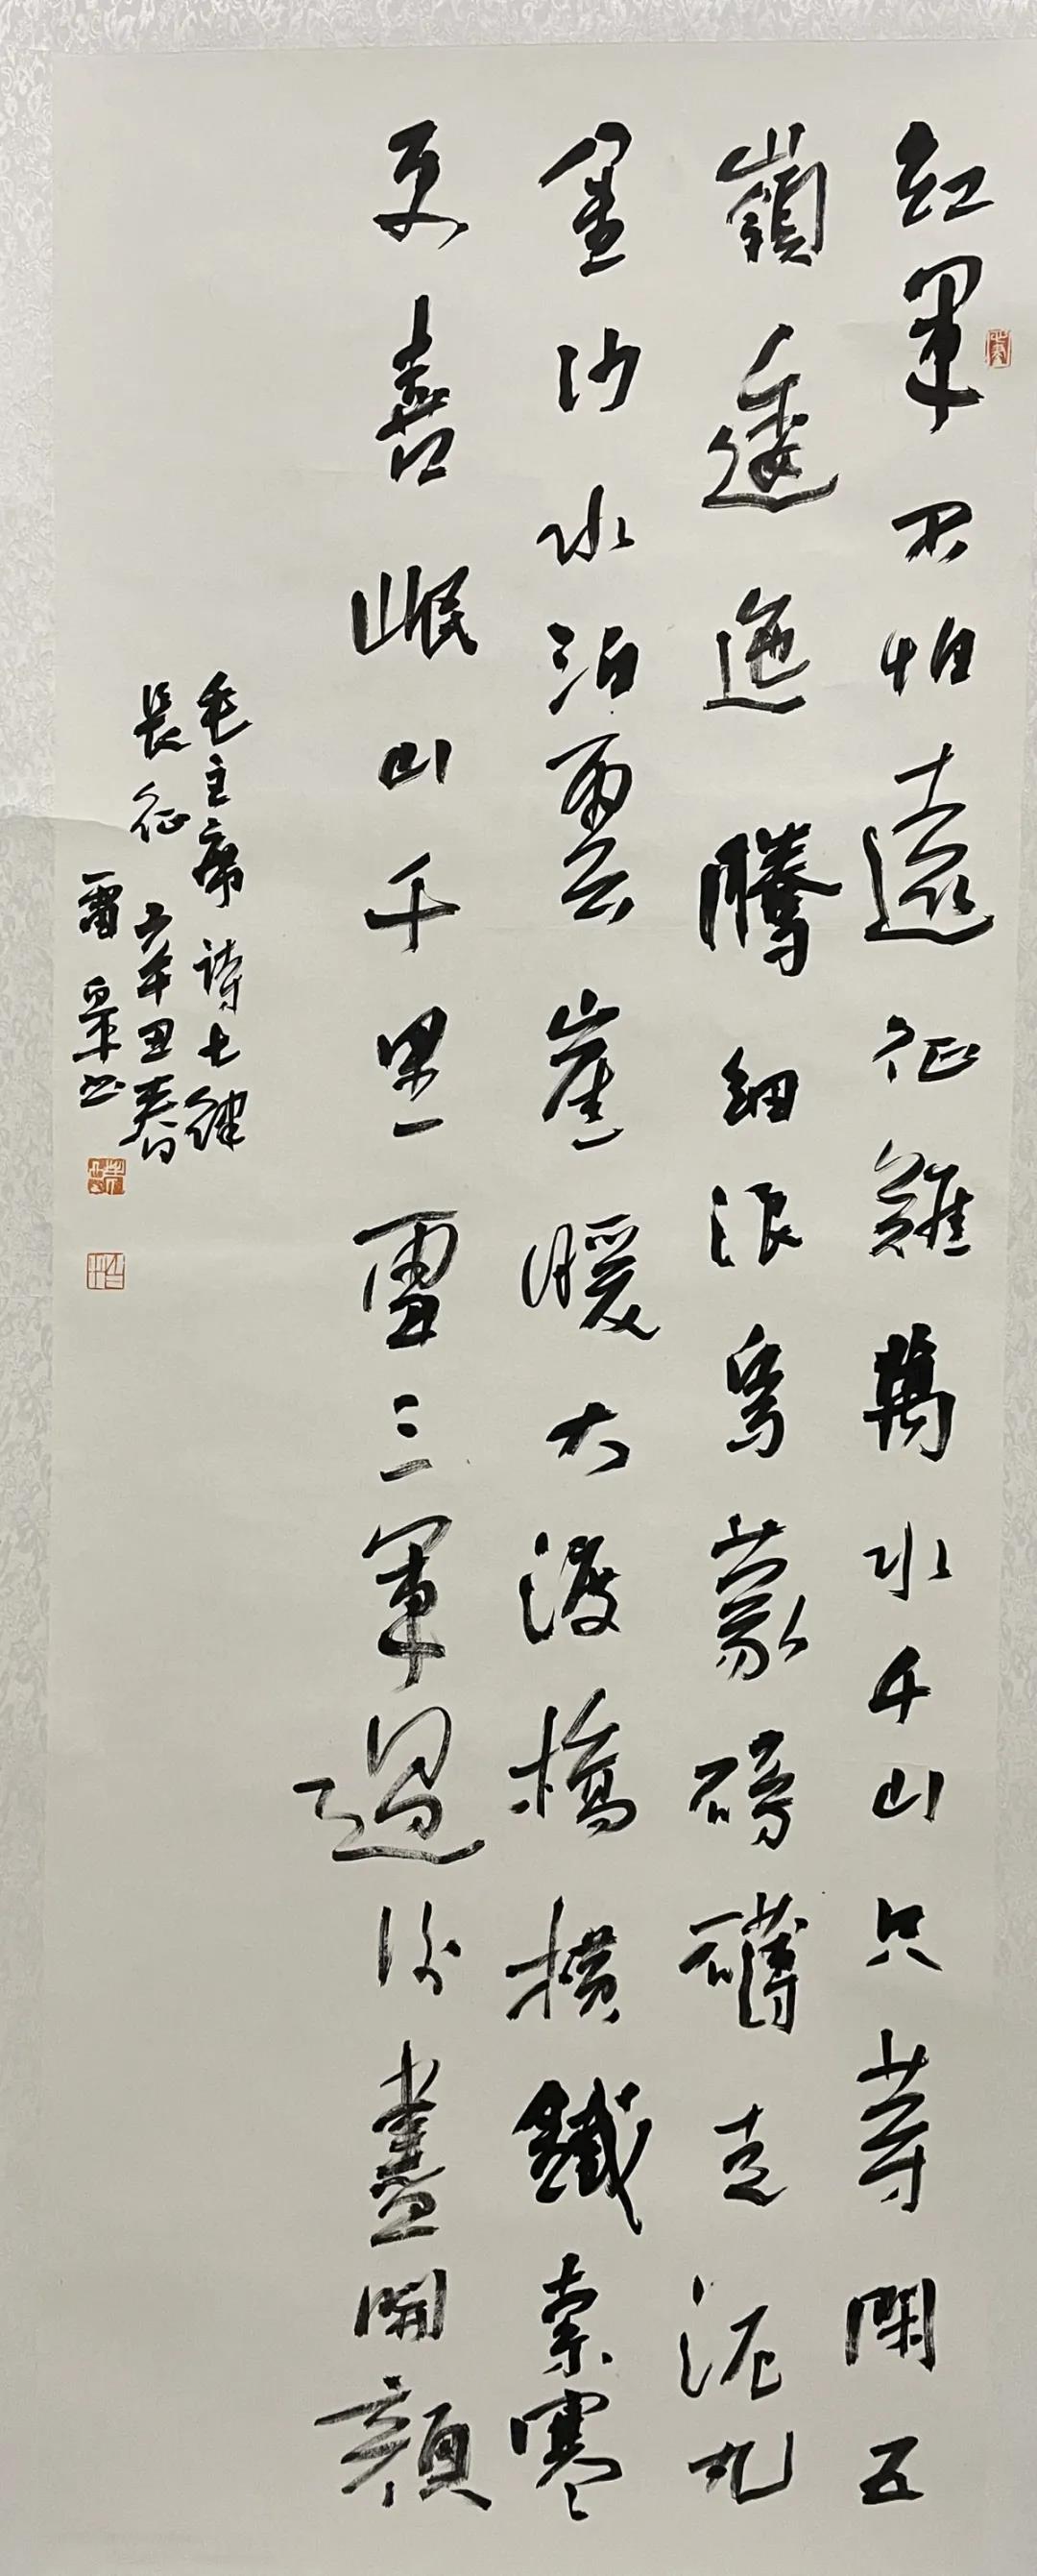 紅軍不怕遠征難萬水千山只等閑五
嶺逶迤騰細浪烏蒙磅礴走泥丸
金沙水泊雲崖暖大渡橋橫鐵索寒
更喜岷山千里雪三軍過後盡開顏
毛主席詩七律
長征 辛丑春
雷